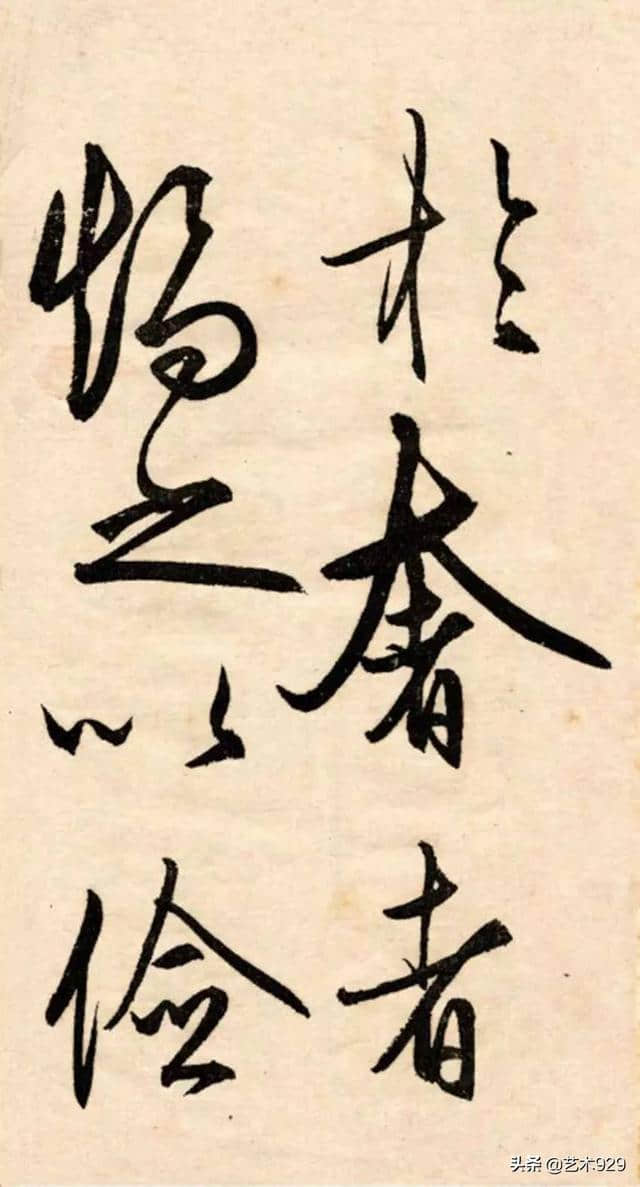 於奢者
矯之以儉
头条 @艺术929